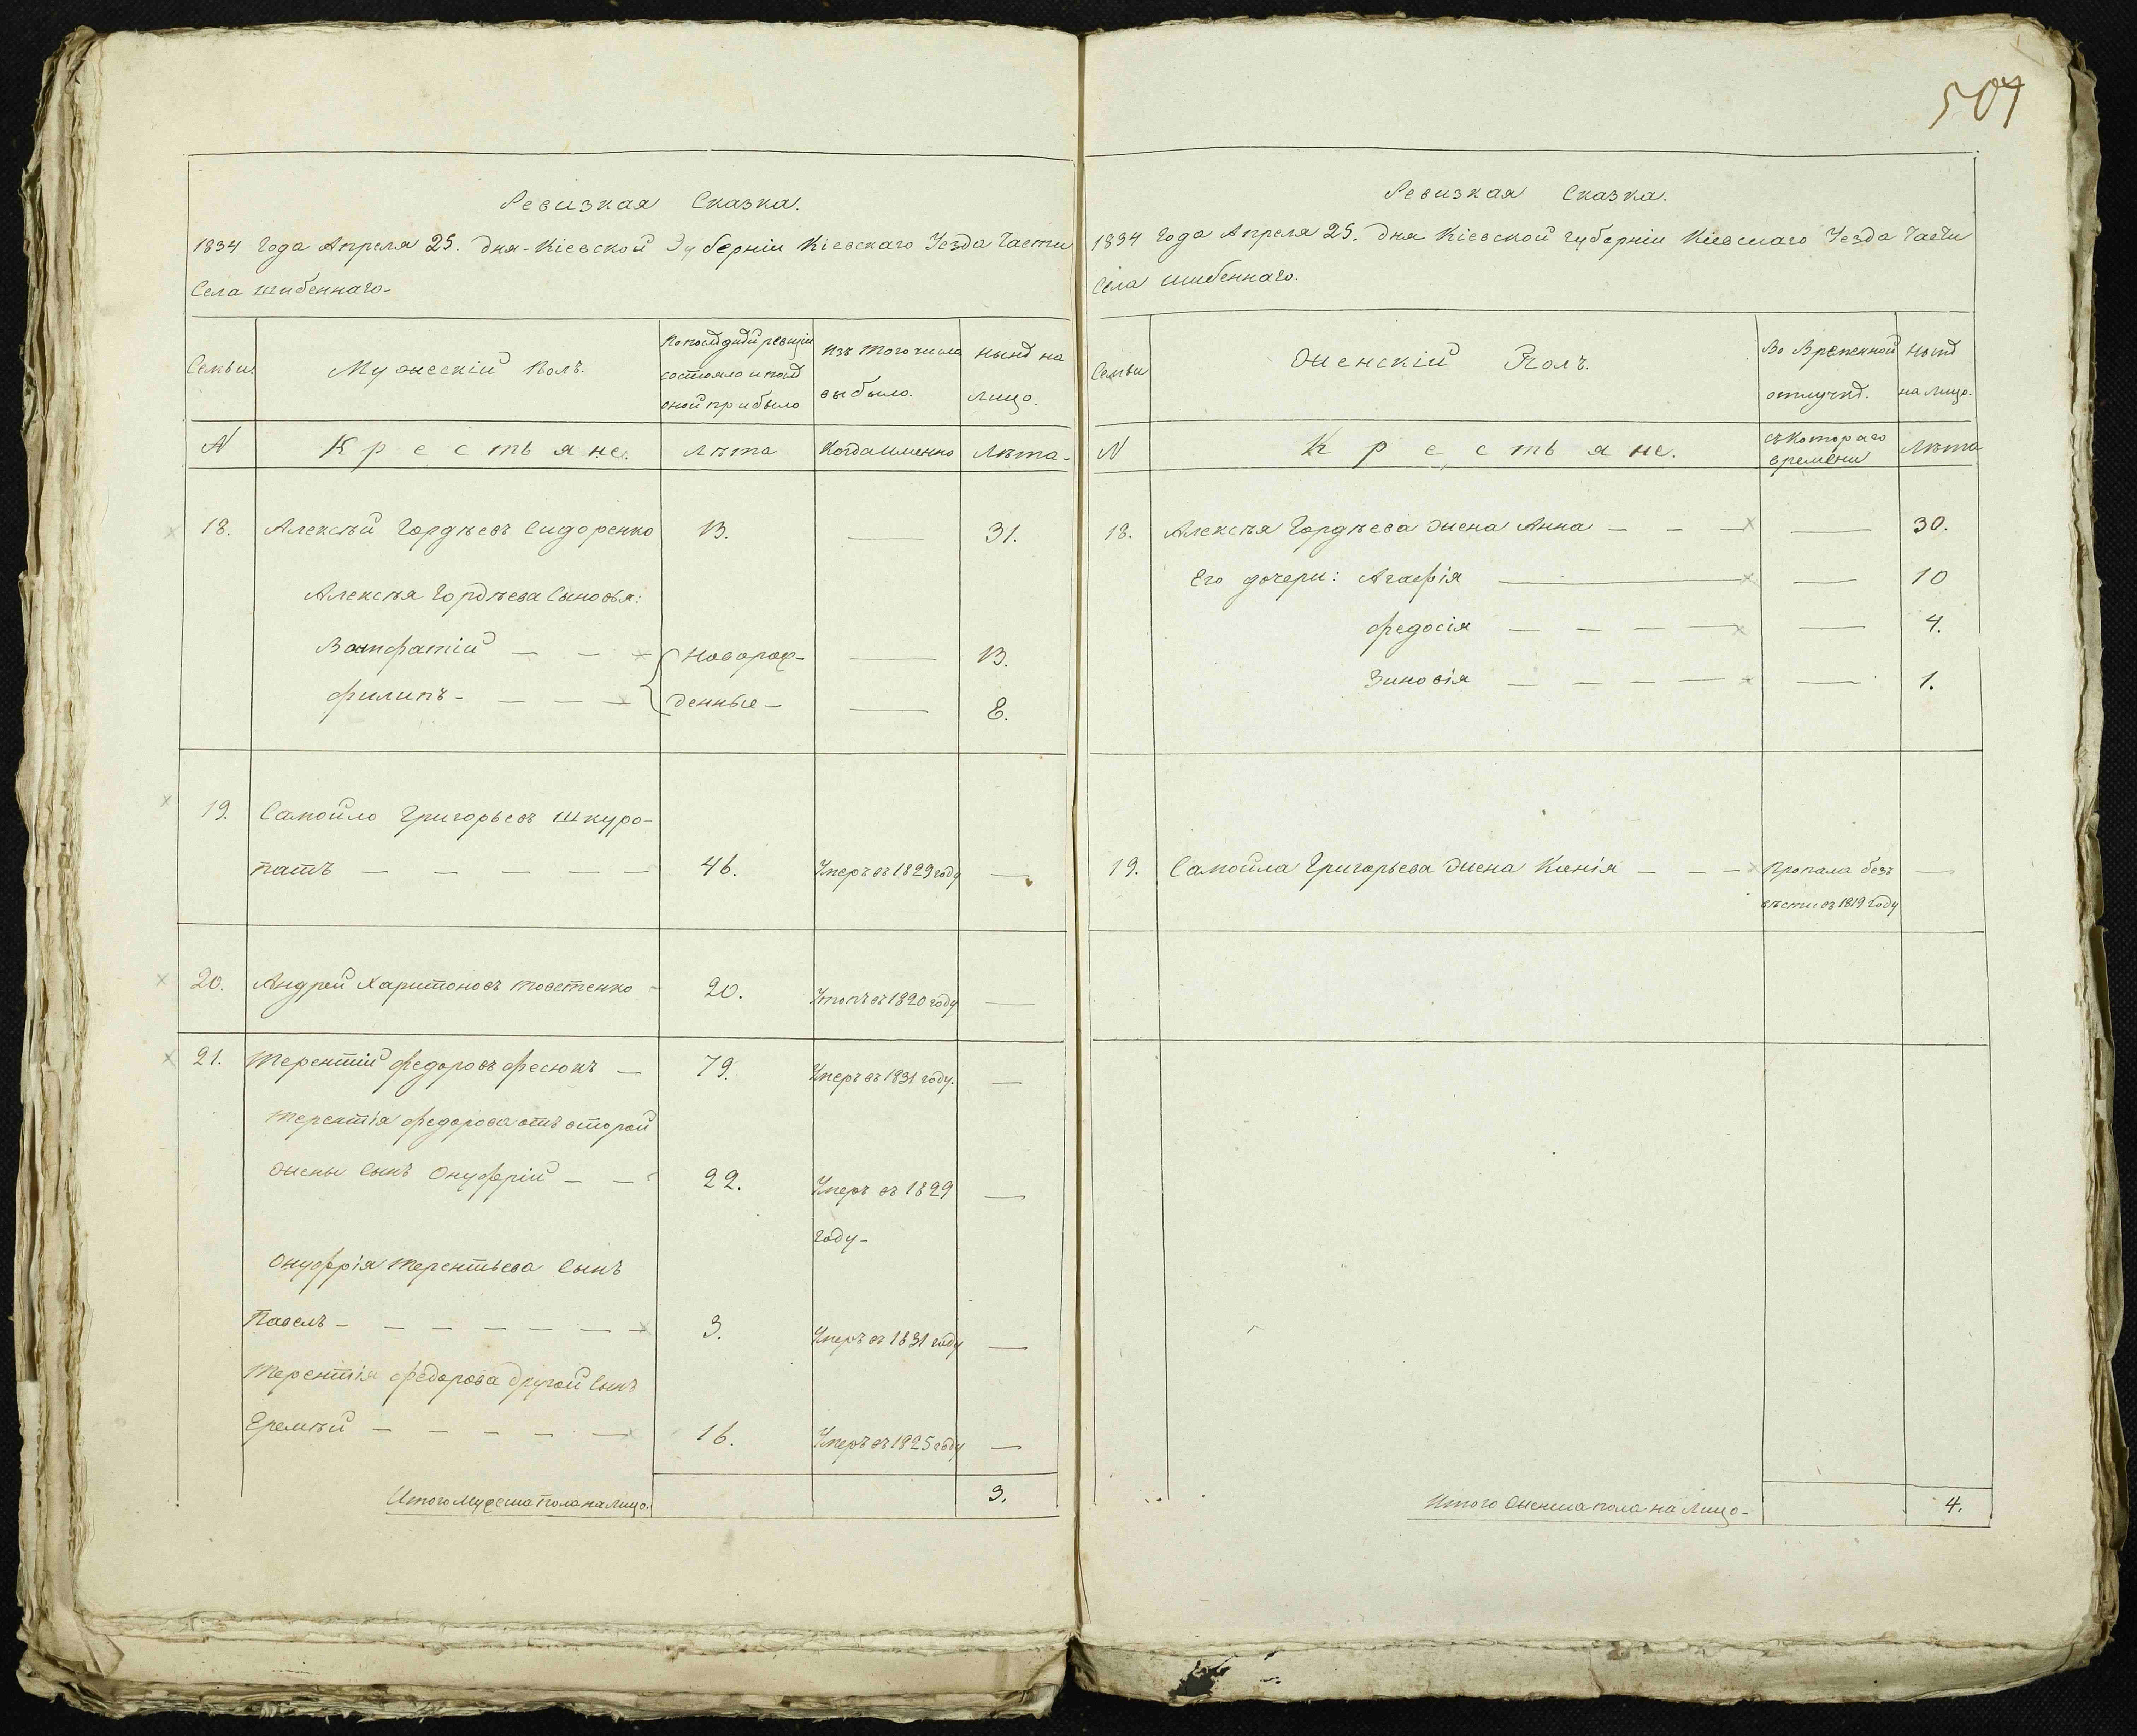 507
Ревизкая Сказка.
1834 Года Апреля 25. Дня Кіевской Губерніи Кіевскаго Уезда Части
Села Шибеннаго.
Семьи.
Мужескій Полъ.
По последней ревизіи
состояло и после
оной прибыло
Изъ того числа
выбыло.
Ныне на
лицо.
N
Крестьяне.
Лѣта
Когда именно
Лѣта
18.
Алексѣй Гордѣевъ Сидоренко
13.
—
31.
Алексѣя Гордѣева Сыновья:
филипъ
Новорож-
денные
13.
8.
19.
Самойло Григорьевъ Шкуро-
патъ
46.
Умеръ въ 1829 году
—
20.
Андрей Харитоновъ Товстенко
20.
въ 1820 году
—
21.
Терентій федоровъ фесюкъ
79.
Умеръ въ 1831 году.
—
Терентія федорова отъ второй
жены Сынъ Онуфрій
22.
Умеръ въ 1829
году
—
Онуфрія Терентьева Сынъ
Павелъ
3.
Умеръ въ 1831 году
—
Терентія федорова другой Сынъ
Еремѣй
16.
Умеръ въ 1825 году
—
Итого мужеска пола на лицо.
3.
Ревизкая Сказка.
1834 Года Апреля 25. Дня Кіевской Губерніи Кіевскаго Уезда Части
Села Шибеннаго.
Семьи
Женскій Полъ.
Во Временной
отлучке.
Ныне
на лицо.
N
Крестьяне.
съ Котораго
времени
Лѣта
18.
Алексѣя Гордѣева жена Анна
—
30.
Его дочери: Агафія
—
10
федосія
—
4.
Зиновія
—
1.
19.
Самойла Григорьева жена
Пропала безъ
вѣсти въ 1819 Году
—
Итого Женска пола на лицо
4.